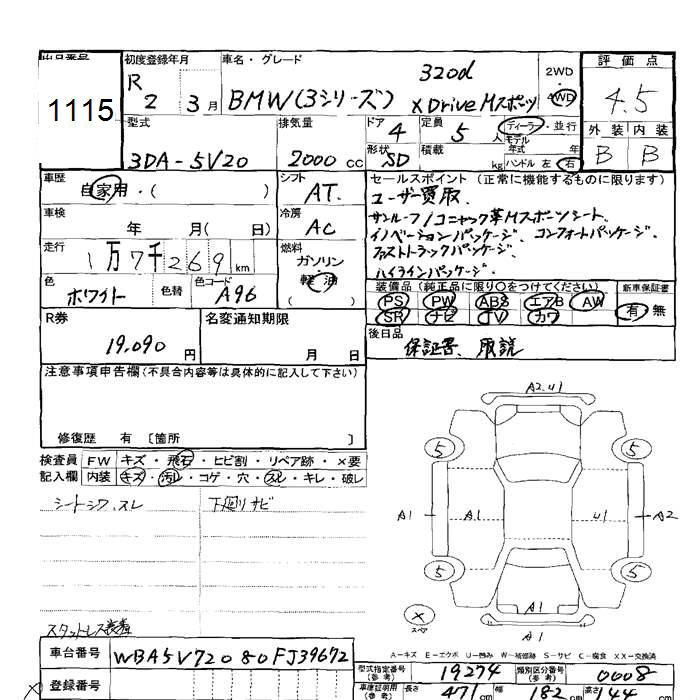 出品番号 初度登録年月 車名・グレード 評価点
1115 R 2 3月 BMW(3シリーズ) 320d xDrive Mスポーツ 2WD 4WD 4.5
型式 排気量 ドア 4 定員 5人 ディーラー・並行 外装 内装
3DA-5V20 2000cc 形状 SD 積載 kg モデル年式 年 ハンドル 左 右 B B
車歴 自家用・( ) シフト AT. セールスポイント (正常に機能するものに限ります)
ユーザー買取、
車検 年 月( 日) 冷房 AC サンルーフ/コニャック革Mスポーツシート、
イノベーションパッケージ、コンフォートパッケージ、
走行 1万7千269km 燃料 ガソリン 軽油 ファストトラックパッケージ、
ハイラインパッケージ、
色 ホワイト 色替 色コード A96 装備品 (純正品に限り○をつけてください) 新車保証書
PS PW ABS エアB AW 有 無
SR ナビ TV カワ
R券 名変通知期限 後日品
19,090円 月 日 保証書、取説
注意事項申告欄 (不具合内容等は具体的に記入して下さい)
修復歴 有 〔箇所 〕
検査員 FW キズ・飛石・ヒビ割・リペア跡・×要
記入欄 内装 キズ・汚レ・コゲ・穴・スレ・キレ・破レ
シートシワ、スレ 下廻りサビ
A2.U1
5 5
A1 A1 U1 A2
5 5
× スペア A1
A1
スタットレス装着
A-キズ E-エクボ U-凹み W-補修跡 S-サビ C-腐食 XX-交換済
車台番号 WBA5V72080FJ39672 型式指定番号(参考) 19274 類別区分番号(参考) 0008
× 登録番号 車庫証明用(参考) 長さ 471cm 幅 182cm 高さ 144cm